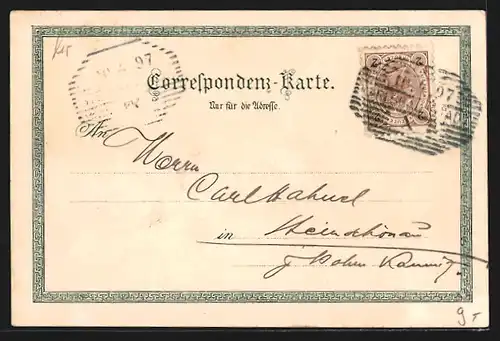 97
Correspondenz-Karte.
Nur für die Adresse.
2 2
97
An
Herrn
Carl Hahnel
in Steinschönau
Böhm. Kamnitz
9